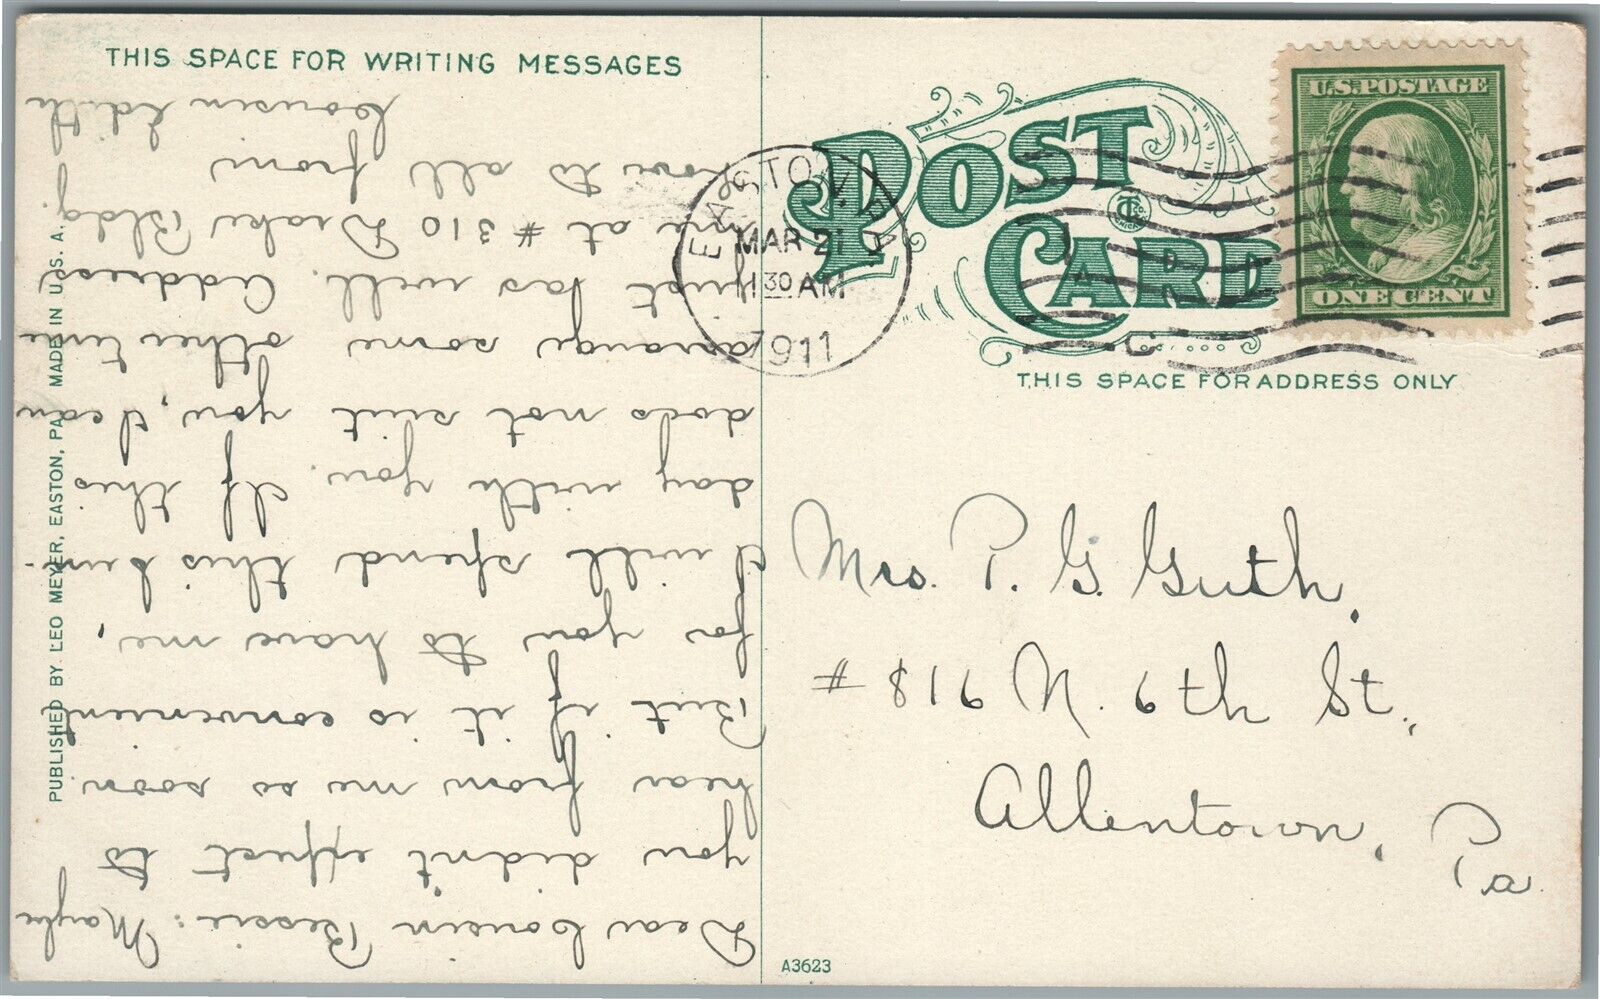 THIS SPACE FOR WRITING MESSAGES
Dear Cousin Bessie: Maybe
you didn't expect to
hear from me so soon
But if it is convenient
for you to have me,
I will spend this Sun-
day with you. If this
does not suit you, I can
arrange some other time
just as well. Address
me at #310 Drake Bldg.
Love to all from
Cousin Edith
PUBLISHED BY LEO MEYER, EASTON, PA. MADE IN U.S.A.
POST CARD
THIS SPACE FOR ADDRESS ONLY
EASTON, PA.
MAR 21
11 30 AM
1911
U.S. POSTAGE
ONE CENT
Mrs. P. G. Guth,
#816 N. 6th St.,
Allentown, Pa
A3623